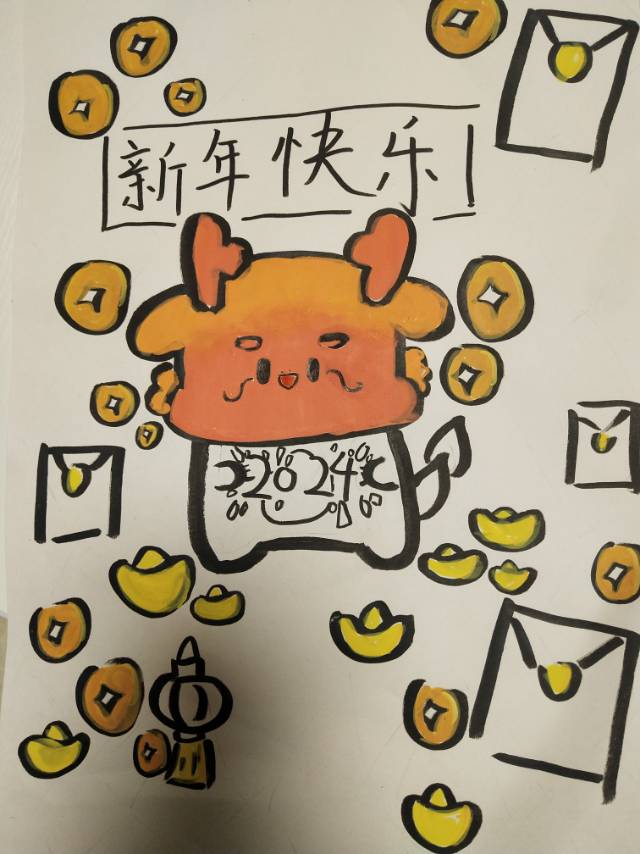 新年快乐
2024